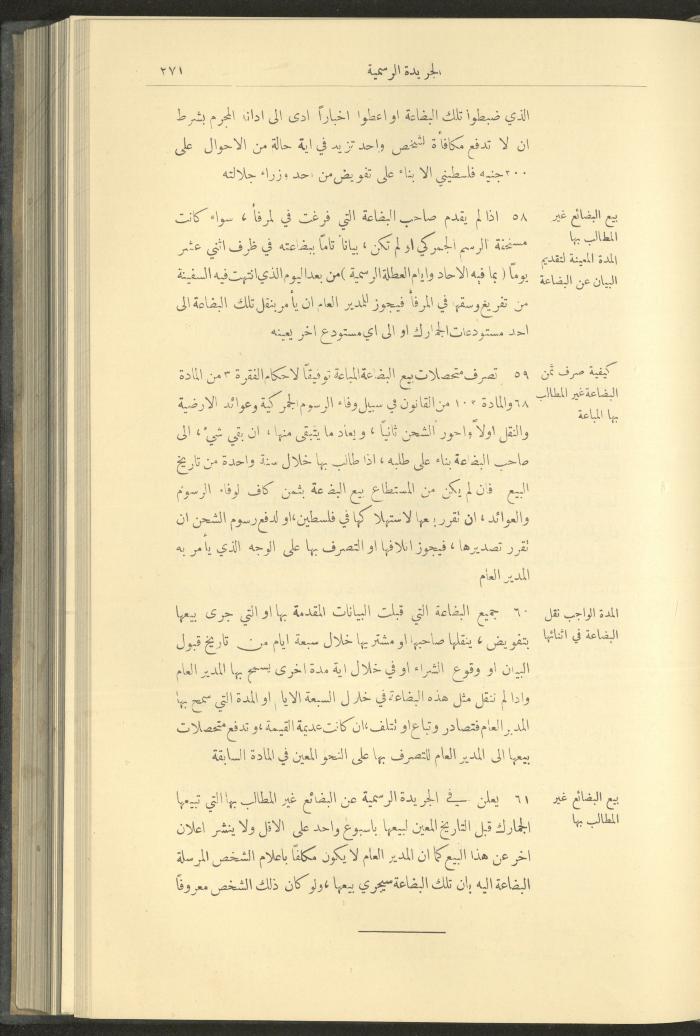 الجريدة الرسمية
٢٧١
الذي ضبطوا تلك البضاعة او اعطوا اخباراً ادى الى ادانة المجرم بشرط
ان لا تدفع مكافأة لشخص واحد تزيد في اية حالة من الاحوال على
٢٠٠ جنيه فلسطيني الا بناء على تفويض من احد وزراء جلالته
بيع البضائع غير
المطالب بها
المدة المعينة لتقديم
البيان عن البضاعة
٥٨ اذا لم يقدم صاحب البضاعة التي فرغت في لمرفأ ، سواء كانت
مستحقة الرسم الجمركي او لم تكن ، بياناً تاماً ببضاعته في ظرف اثني عشر
يوماً ( بما فيه الاحاد وايام العطلة الرسمية ) من بعد اليوم الذي انتهت فيه السفينة
من تفريغ وسقها في المرفأ فيجوز للمدير العام ان يأمر بنقل تلك البضاعة الى
احد مستودعات الجمارك او الى اي مستودع اخر يعينه
كيفية صرف ثمن
البضاعة غير المطالب
بها المباعة
٥٩ تصرف متحصلات بيع البضاعة المباعة توفيقاً لاحكام الفقرة ٣ من المادة
٦٨ والمادة ١٠٣ من القانون في سبيل وفاء الرسوم الجمركية وعوائد الارضية
والنقل اولاً واجور الشحن ثانياً ، ويعاد ما يتبقى منها ، ان بقي شيء ، الى
صاحب البضاعة بناء على طلبه ، اذا طالب بها خلال سنة واحدة من تاريخ
البيع فان لم يكن من المستطاع بيع البضاعة بثمن كاف لوفاء الرسوم
والعوائد ، ان تقرر بيعها لاستهلاكها في فلسطين ، او لدفع رسوم الشحن ان
تقرر تصديرها ، فيجوز اتلافها او التصرف بها على الوجه الذي يأمر به
المدير العام
المدة الواجب نقل
البضاعة في اثنائها
٦٠ جميع البضاعة التي قبلت البيانات المقدمة بها او التي جرى بيعها
بتفويض ، ينقلها صاحبها او مشتريها خلال سبعة ايام من تاريخ قبول
البيان او وقوع الشراء او في خلال اية مدة اخرى يسمح بها المدير العام
واذا لم تنقل مثل هذه البضاعة في خلال السبعة الايام او المدة التي سمح بها
المدير العام فتصادر وتباع او تتلف ، ان كانت عديمة القيمة ، وتدفع متحصلات
بيعها الى المدير العام للتصرف بها على النحو المعين في المادة السابقة
بيع البضائع غير
المطالب بها
٦١ يعلن في الجريدة الرسمية عن البضائع غير المطالب بها التي تبيعها
الجمارك قبل التاريخ المعين لبيعها باسبوع واحد على الاقل ولا ينشر اعلان
اخر عن هذا البيع كما ان المدير العام لا يكون مكلفاً باعلام الشخص المرسلة
البضاعة اليه بان تلك البضاعة سيجري بيعها ، ولو كان ذلك الشخص معروفاً